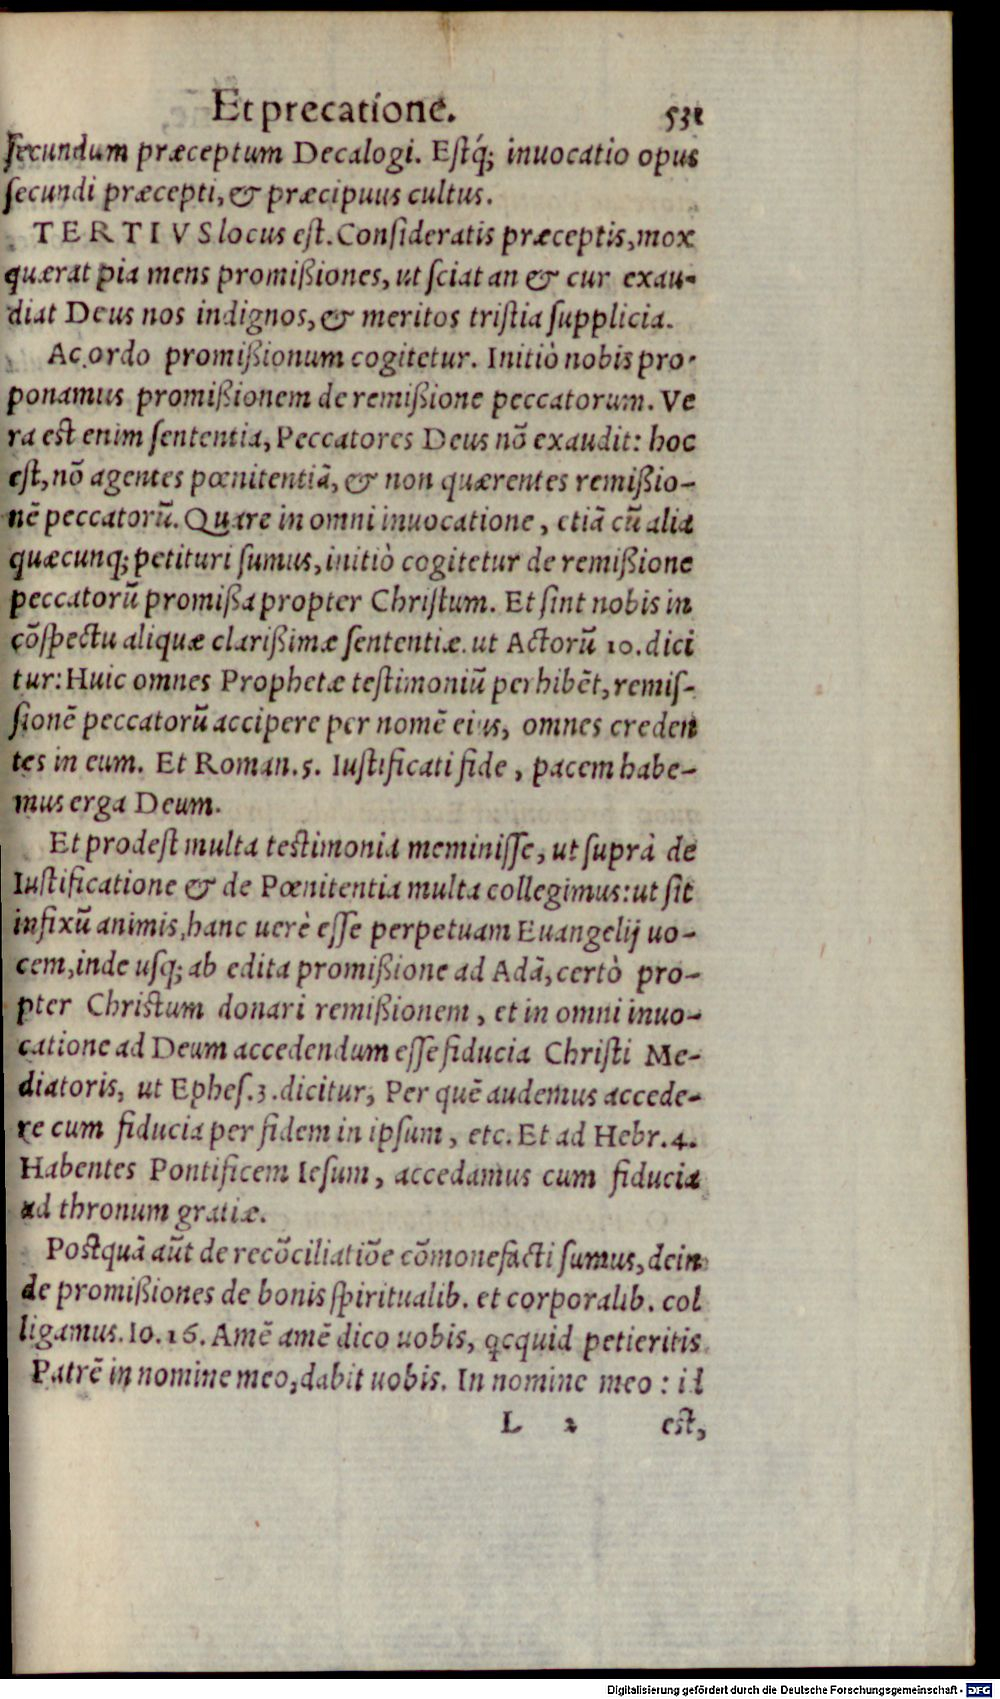 Et precatione. 531
secundum præceptum Decalogi. Estq́; inuocatio opus
secundi præcepti, & præcipuus cultus.
TERTIVS locus est. Consideratis præceptis, mox
quærat pia mens promißiones, ut sciat an & cur exau-
diat Deus nos indignos, & meritos tristia supplicia.
Ac ordo promißionum cogitetur. Initiò nobis pro-
ponamus promißionem de remißione peccatorum. Ve
ra est enim sententia, Peccatores Deus nõ exaudit: hoc
est, nõ agentes pœnitentiã, & non quærentes remißio-
nẽ peccatorũ. Quare in omni inuocatione, etiã cũ alia
quæcunq; petituri sumus, initiò cogitetur de remißione
peccatorũ promißa propter Christum. Et sint nobis in
cõspectu aliquæ clarißimæ sententiæ. ut Actorũ 10. dici
tur: Huic omnes Prophetæ testimoniũ perhibẽt, remis-
sionẽ peccatorũ accipere per nomẽ eius, omnes creden
tes in eum. Et Roman. 5. Iustificati fide, pacem habe-
mus erga Deum.
Et prodest multa testimonia meminisse, ut suprà de
Iustificatione & de Pœnitentia multa collegimus: ut sit
infixũ animis, hanc uerè esse perpetuam Euangelij uo-
cem, inde usq; ab edita promißione ad Adã, certò pro-
pter Christum donari remißionem, et in omni inuo-
catione ad Deum accedendum esse fiducia Christi Me-
diatoris, ut Ephes. 3. dicitur, Per quẽ audemus accede-
re cum fiducia per fidem in ipsum, etc. Et ad Hebr. 4.
Habentes Pontificem Iesum, accedamus cum fiducia
ad thronum gratiæ.
Postquã aũt de recõciliatiõe cõmonefacti sumus, dein
de promißiones de bonis spiritualib. et corporalib. col
ligamus. Io. 16. Amẽ amẽ dico uobis, qcquid petieritis
Patrẽ in nomine meo, dabit uobis. In nomine meo: id
L 2 est,
Digitalisierung gefördert durch die Deutsche Forschungsgemeinschaft - DFG